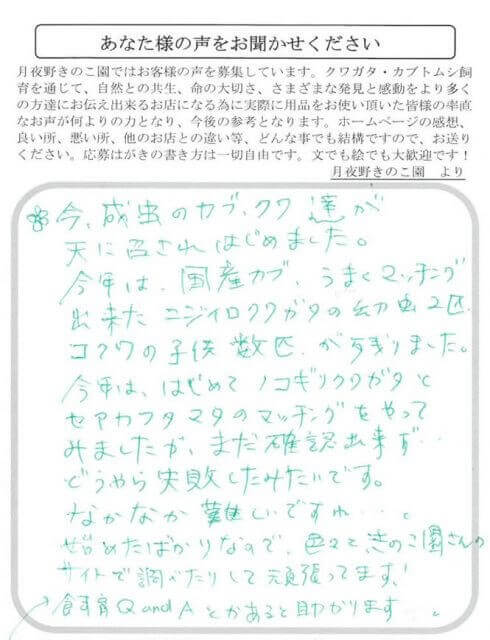 あなた様の声をお聞かせください
月夜野きのこ園ではお客様の声を募集しています。クワガタ・カブトムシ飼
育を通じて、自然との共生、命の大切さ、さまざまな発見と感動をより多く
の方達にお伝え出来るお店になる為に実際に用品をお使い頂いた皆様の率直
なお声が何よりの力となり、今後の参考となります。ホームページの感想、
良い所、悪い所、他のお店との違い等、どんな事でも結構ですので、お送り
ください。応募はがきの書き方は一切自由です。文でも絵でも大歓迎です！
月夜野きのこ園　より
今、成虫のカブ、クワ達が
天に召されはじめました。
今年は、国産カブ、うまくマッチング
出来たニジイロクワガタの幼虫2匹、
コクワの子供数匹、が残りました。
今年は、はじめてノコギリクワガタと
セアカフタマタのマッチングをやって
みましたが、まだ確認出来ず…
どうやら失敗したみたいです。
なかなか難しいですね…。
始めたばかりなので、色々ときのこ園さんの
サイトで調べたりして頑張ってます！
→飼育QandAとかあると助かります